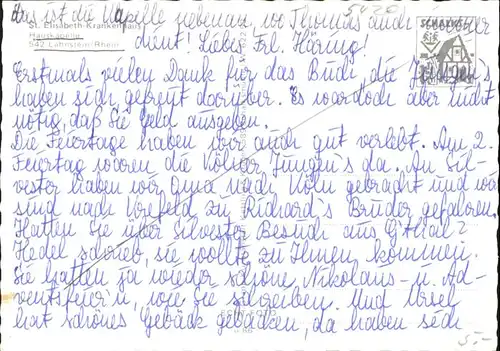 Das ist die Kapelle nebenan, wo Thomas auch öfter
St. Elisabeth-Krankenhaus
Hauskapelle
542 Lahnstein/Rhein
dient! Liebes Frl. Häring!
Erstmals vielen Dank für das Buch, die Jungen's
haben sich gefreut darüber. Es war doch aber nicht
nötig, daß Sie Geld ausgeben.
Die Feiertage haben wir auch gut verlebt. Am 2.
Feiertag waren die Kölner Jungen's da. An Sil-
vester haben wir Oma nach Köln gebracht und wir
sind nach Krefeld zu Richard's Bruder gefahren.
Hatten Sie über Silvester Besuch aus
Hedel schrieb, sie wollte zu Ihnen kommen.
Sie hatten ja wieder schöne Nikolaus- u. Ad-
ventsfeier u, wie Sie schreiben. Und Ursel
hat schönes Gebäck gebacken, da haben sich
5,-